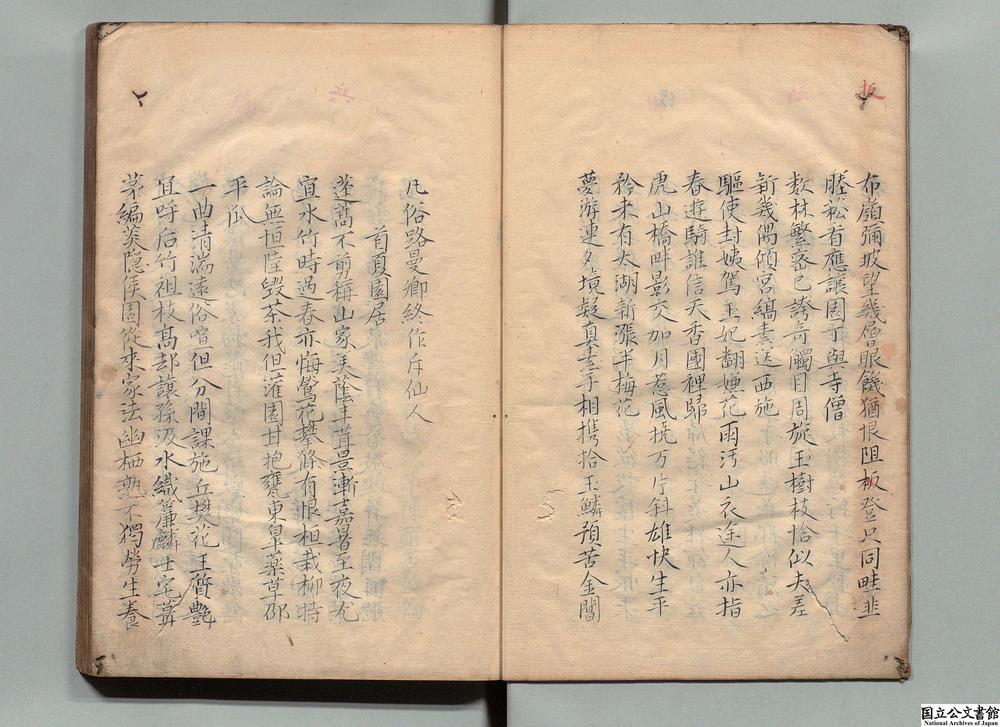 布嶺彌坡望幾層眼饑猶恨阻板登只同畦韭
塍菘看應讓園丁與寺僧
数林繁密已誇奇觸目周旋玉樹枝恰似夫差
新幾偶傾宮縞素送西施
驅使封姨駕玉妃翻嫌花雨汚山衣途人亦指
春遊騎誰信天香國裡歸
虎山橋畔影交加月惹風撓万片斜雄快生平
矜未有太湖新漲半梅花
夢游連夕境疑真素手相携拾玉鱗預苦金閶
凡俗路曼卿終作斥仙人
首夏園居
蓬蒿不剪稱山家美蔭丰葺景漸嘉暑至夜尤
宜水竹時過春亦悔鶯花攀條有恨桓栽柳時
論無恒陸毀茶我但灌園甘抱甕東皐藥草邵
平瓜
一曲清湍遠俗喧但分間課施丘樊花王齊艷
宜呼后竹祖枝高却讓孫汲水織簾麟士宅
茅編葵隱侯園從来家法幽栖熟不獨勞生養
板
兵
国立公文書館
National Archives of Japan